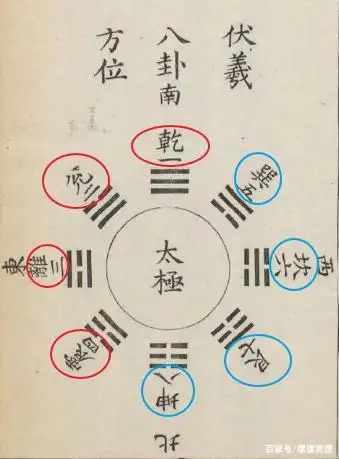 伏羲
八卦
方位
南
乾一
兌二
巽五
東
離三
太極
坎六
西
震四
艮七
坤八
北
百家号/